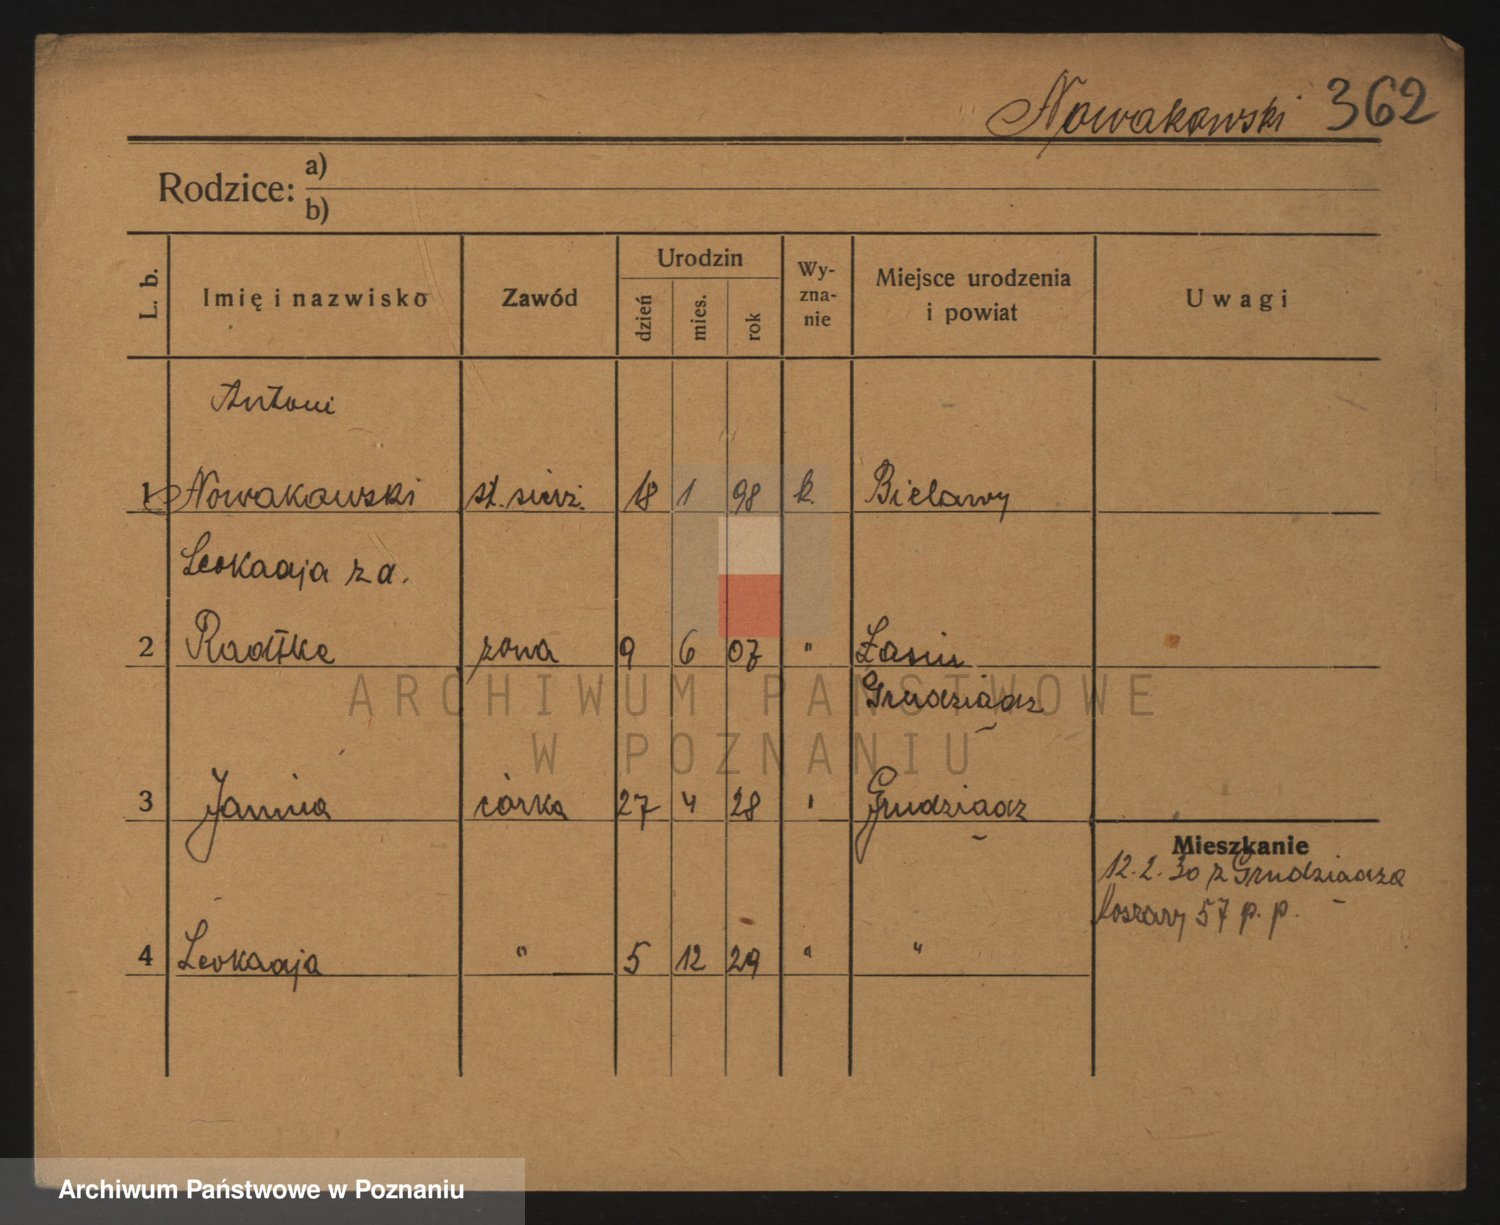 Nowakowski 362
Rodzice: a)
b)
L. b. Imię i nazwisko Zawód Urodzin dzień mies. rok Wy-zna-nie Miejsce urodzenia i powiat Uwagi
Antoni
1 Nowakowski st. sierż. 18 1 98 k. Bielawy
Leokadja z d.
2 Radtke żona 9 6 07 " Łasin
Grudziądz
ARCHIWUM PAŃSTWOWE
W POZNANIU
3 Janina córka 27 4 28 " Grudziądz
Mieszkanie
12. 2. 30 z Grudziądza
Koszary 57 p. p.
4 Leokadja " 5 12 29 " "
Archiwum Państwowe w Poznaniu